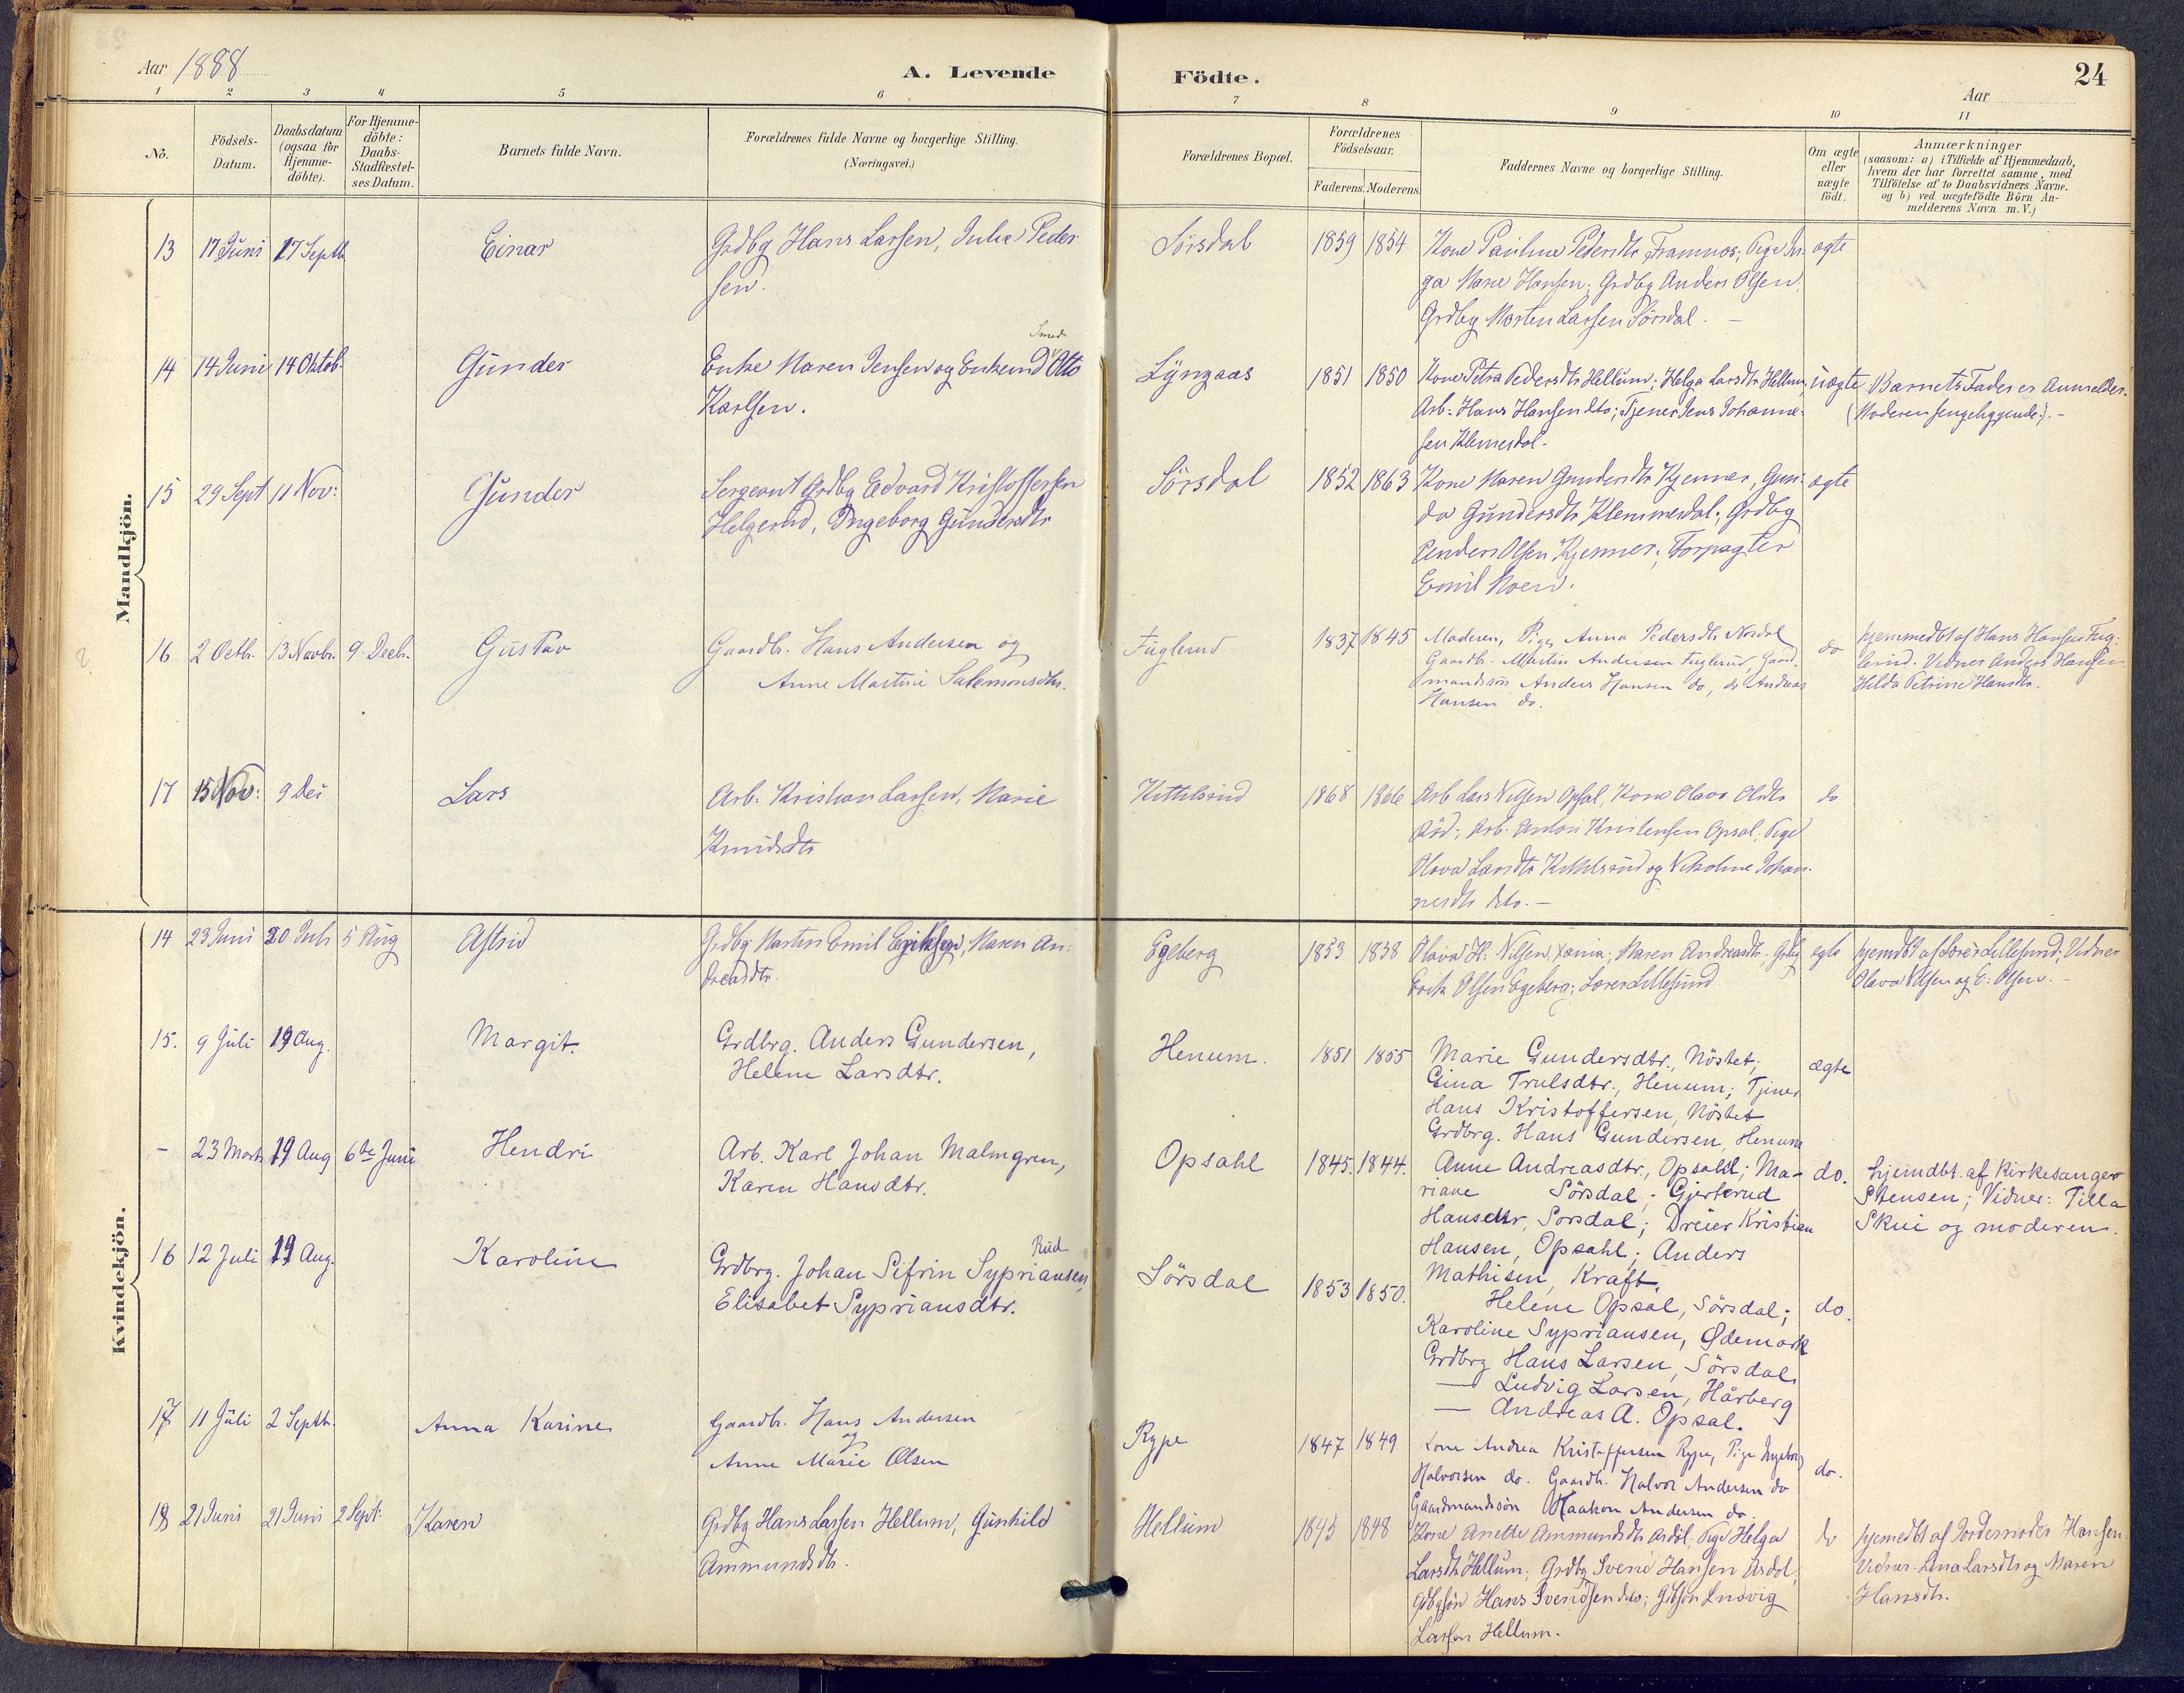 Aar 1888
A. Levende Födte.
24
Aar
1 2 3 4 5 6 7 8 9 10 11
No.
Födsels-Datum.
Daabsdatum (ogsaa for Hjemme-döbte).
For Hjemme-döbte: Daabs-Stadfæstel-ses Datum.
Barnets fulde Navn.
Forældrenes fulde Navne og borgerlige Stilling.
(Næringsvei.)
Forældrenes Bopæl.
Forældrenes Födselsaar.
Faderens. Moderens.
Faddernes Navne og borgerlige Stilling.
Om ægte eller uægte födt.
Anmærkninger
(saasom: a) i Tilfælde af Hjemmedaab,
hvem der har forrettet samme, med
Tilföielse af to Daabsvidners Navne.
og b) ved uægtefödte Börn An-
melderens Navn m.V.)
Mandkjön.
13 17 Juni 17 Septb Einar Grdbg Hans Larsen, Julie Peder- Sörsdal 1859 1854 Kone Pauline Pedersdtr Framnæs; Pige In- ægte
sen. ga Marie Hansen; Grdbg Anders Olsen,
Grdbg Morten Larsen Sörsdal. —
Smed
14 14 Juni 14 Oktob. Gunder Enke Maren Jensen og Enkemd Otto Lyngaas 1851 1850 Kone Petra Pedersdtr Hellum; Helga Larsdtr Hellum, uægte Barnets Fader er Anmelder.
Karlsen. Arb. Hans Hansen dto; Tjener Jens Johanne- (Moderen sengeliggende). -
sen Klemesdal.
15 29 Sept 11 Nov: Gunder Sergeant Grdbg Edvard Kristoffersen Sörsdal 1852 1863 Kone Maren Gundersdtr Kjenner, Gun- ægte
Helgerud, Ingeborg Gundersdtr da Gundersdtr Klemmesdal; Grdbg
Anders Olsen Kjenner; Forpagter
Emil Moen.
16 2 Octb. 13 Novbr. 9 Decb. Gustav Gaardb. Hans Andersen og Fuglerud 1837 1845 Moderen, Pige Anna Pedersdtr Nordal do hjemmedbt af Hans Hansen Fug-
Anne Martine Salemonsdtr. Gaardb. Martin Andersen Fuglerud, Gaard- lerud. Vidner Anders Hansen
mandssön Anders Hansen do, do Andreas Hilda Petrine Hansdtr.
Hansen do.
17 15 Nov: 9 Dec Lars Arb. Kristian Larsen, Marie Kittilsrud 1868 1866 Arb Lars Nilsen Opsal, Kone Olava Olsdtr do
Knudsdtr Röd; Arb. Anton Kristensen Opsal, Pige
Olava Larsdtr Kittilsrud og Nikoline Johan-
nesdtr dto. —
Kvindekjön.
14 23 Juni 20 Juli 5 Aug Astrid Grdbg Martin Emil Eriksen, Maren An- Egeberg 1853 1838 Olava H. Nilsen, Xania; Maren Andreasdtr; Grdbg ægte hjemdbt af Lærer Lillesund; Vidner
dreasdtr. Erik Olsen Egeberg; Lærer Lillesund Olava Nilsen og E. Olsen. —
15. 9 Juli 19 Aug. Margit. Grdbrg. Anders Gundersen, Henum. 1851 1855 Marie Gundersdtr., Nöstet; ægte
Helene Larsdtr. Gina Trulsdtr., Henum; Tjener
Hans Kristoffersen, Nöstet
Grdbrg. Hans Gundersen, Henum
- 23 Marts 19 Aug 6te Juni Hendri Arb. Karl Johan Malmgren, Opsahl 1845. 1844. Anne Andreasdtr., Opsahl; Ma- do. hjemdbt. af Kirkesanger
Karen Hansdtr. riane Sörsdal; Gjertrud Stensen; Vidner: Tilla
Hansdtr, Sorsdal; Dreier Kristian Skui og moderen.
Hansen, Opsahl; Anders
Mathisen, Kraft.
Rud
16 12 Juli 19 Aug. Karoline Grdbrg. Johan Sifrin Sypriansen, Sörsdal 1853 1850. Helene Opsal, Sörsdal; do.
Elisabet Sypriansdtr. Karoline Sypriansen, Ødemark
Grdbrg Hans Larsen, Sörsdal
— Ludvig Larsen, Hårberg
— Andreas A. Opsal.
17 11 Juli 2 Septb. Anna Karine Gaardb. Hans Andersen Rype 1847 1849 Kone Andrea Kristoffersen Rype, Pige Ingeborg do.
og Halvorsen do. Gaardb. Halvor Andersen do
Anne Marie Olsen Gaardmandssön Haakon Andersen do.
18 21 Juni 21 Juni 2 Sept: Karen Grdbg Hans Larsen Hellum, Gunhild Hellum 1845 1848 Kone Anette Ammundsdtr Asdöl, Pige Helga do hjemedbt af Jordemoder Hansen.
Ammundsdtr. Larsdtr Hellum; Grdbg Svend Hansen Asdöl; Vidner. Lina Larsdtr og Maren
Gdbgsön Hans Svendsen dto; Gdbsön Ludvig Hansdtr.
Larsen Hellum.